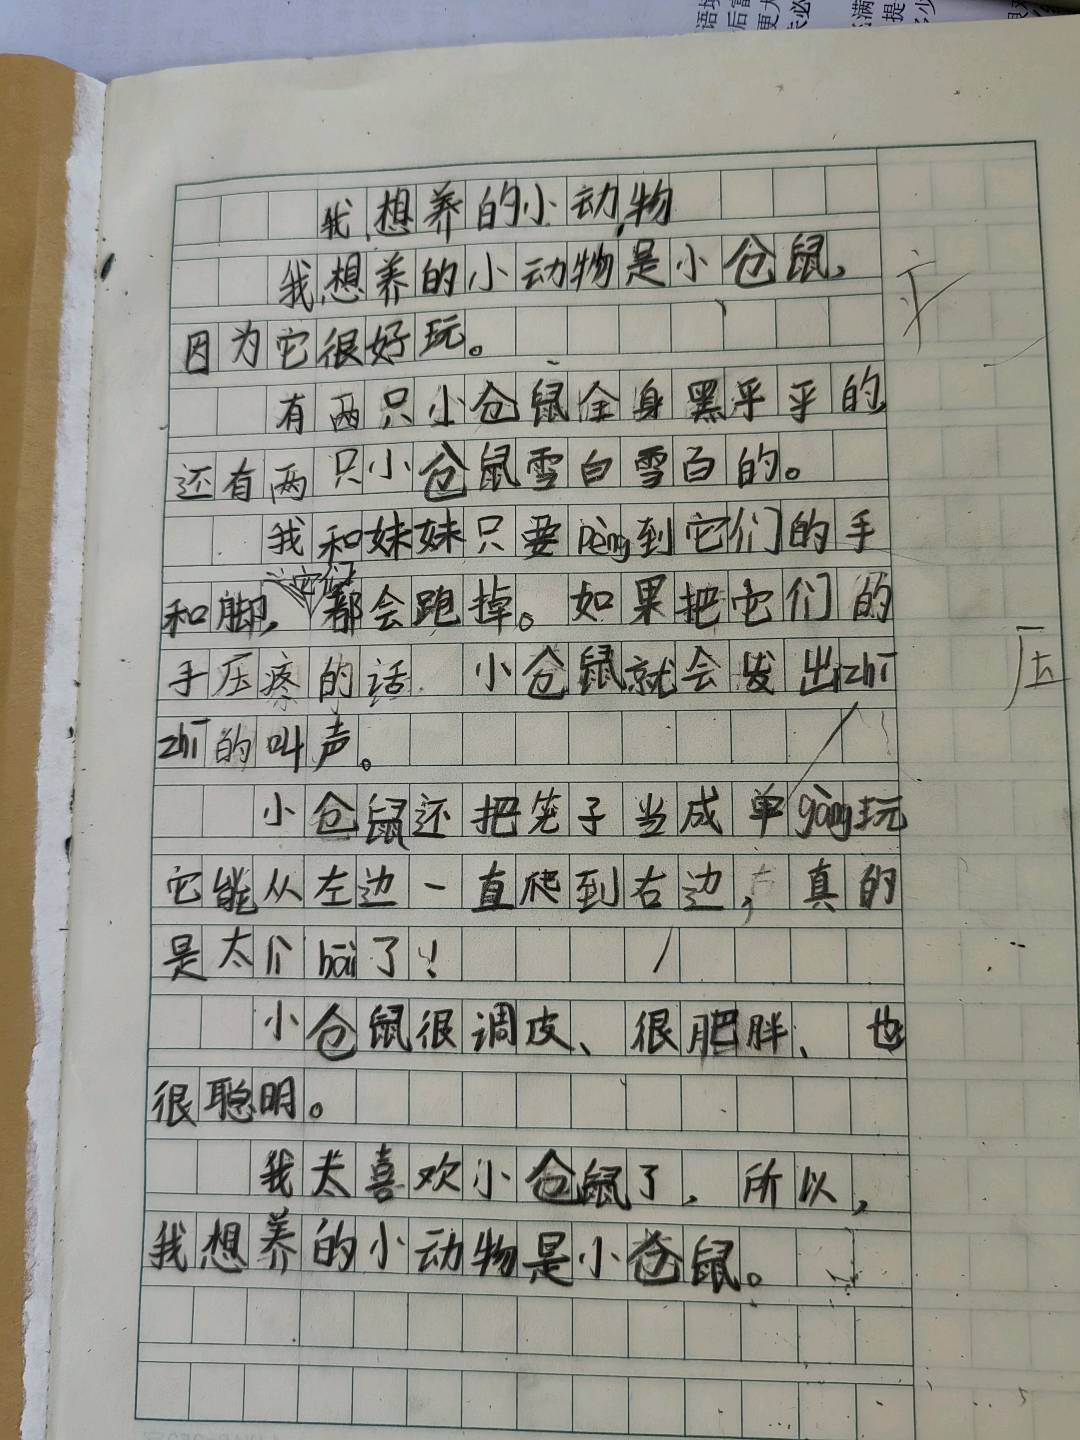 我想养的小动物
我想养的小动物是小仓鼠,
因为它很好玩。
有两只小仓鼠全身黑乎乎的,
还有两只小仓鼠雪白雪白的。
我和妹妹只要pèng到它们的手
和脚,它们都会跑掉。如果把它们的
手压疼的话 小仓鼠就会发出zhī
zhī的叫声。
小仓鼠还把笼子当成单gàng玩
它能从左边一直爬到右边,真的
是太厉hài了!
小仓鼠很调皮、很肥胖、也
很聪明。
我太喜欢小仓鼠了,所以,
我想养的小动物是小仓鼠。
压